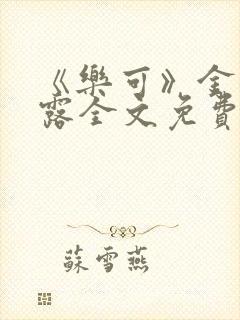 《樂可》金
露全文免費
蘇雪燕